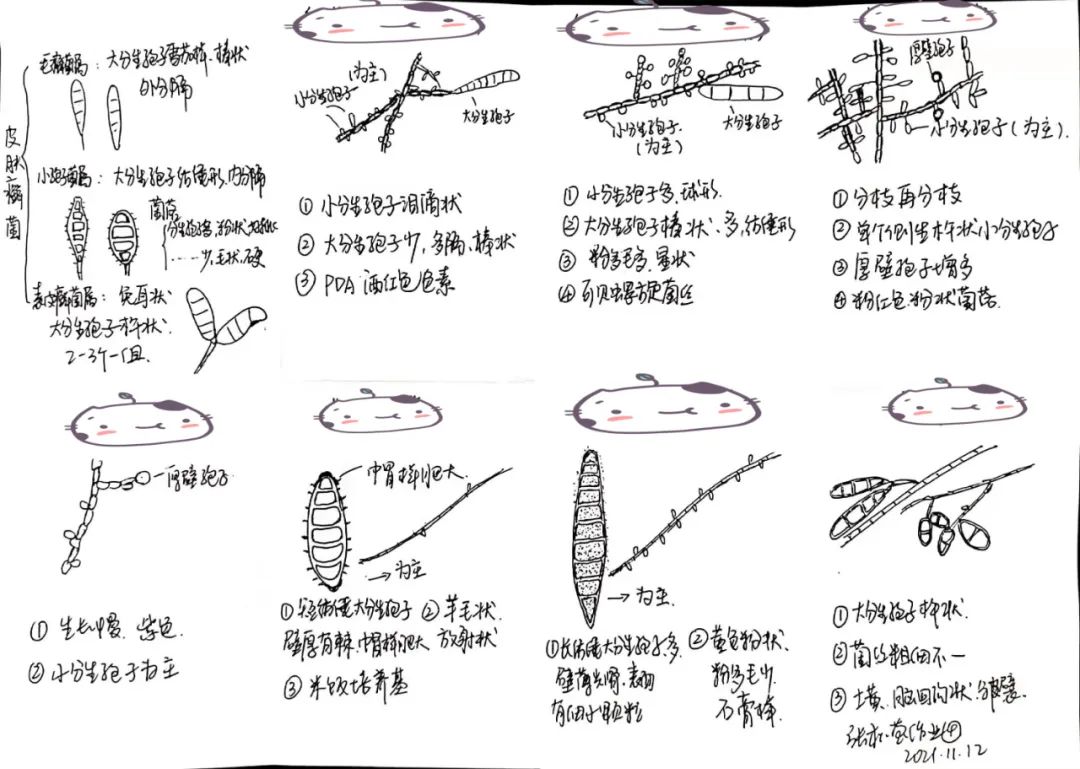 皮肤癣菌
毛癣菌属:大分生孢子雪茄样、棒状
外分隔
小孢子菌属:大分生孢子纺锤形、内分隔
菌落
少,毛状,硬
表皮癣菌属:兔耳状
大分生孢子杵状.
2-3个一组.
(为主)
小分生孢子
大分生孢子
①小分生孢子泪滴状
②大分生孢子少,多隔、棒状
③PDA 酒红色色素
小分生孢子.
(为主)
大分生孢子
①小分生孢子多,球形.
②大分生孢子棒状、多,纺锤形
③粉多毛多,星状
④可见螺旋菌丝
厚壁孢子
小分生孢子(为主).
①分枝再分枝
②单个侧生杵状小分生孢子
③厚壁孢子增多
④粉红色.粉状菌落.
厚壁孢子
①生长慢、紫色
②小分生孢子为主
巾冒样肥大.
→为主
①纺锤大分生孢子
壁厚有棘、巾冒样肥大
②羊毛状
放射状
③米饭培养基
→为主.
①长纺锤大分生孢子多.
壁薄光滑、表面
有细小颗粒
②黄色粉状、
粉多毛少.
石膏样.
①大分生孢子杵状.
②菌丝粗细不一
③土黄、脑回沟状、皲裂.
作业④
2021.11.12